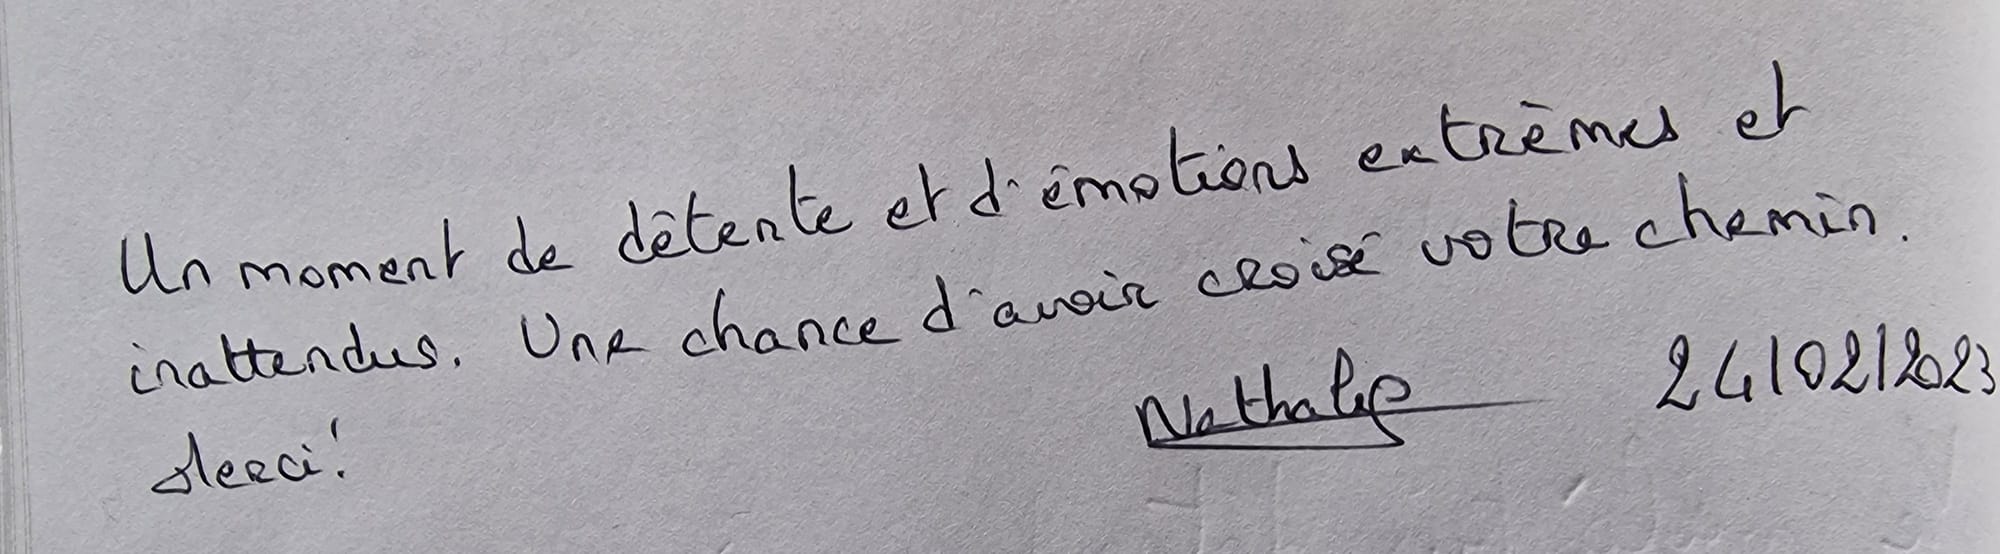 Un moment de détente et d'émotions extrêmes et
inattendus. Une chance d'avoir croisé votre chemin.
Merci!
Nathalie 24/02/2023